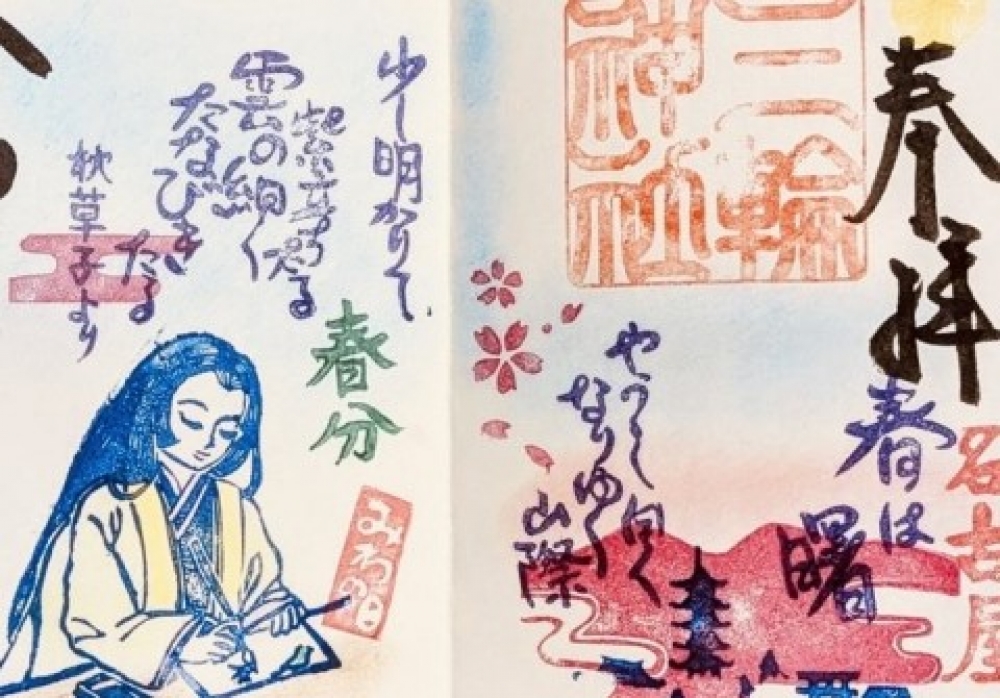 奉拝
三輪
神社
名古屋
春は
曙
やうやう白く
なりゆく
山際
少し明かりて、
紫立ちたる
雲の細く
たなびき
たる
枕草子より
春分